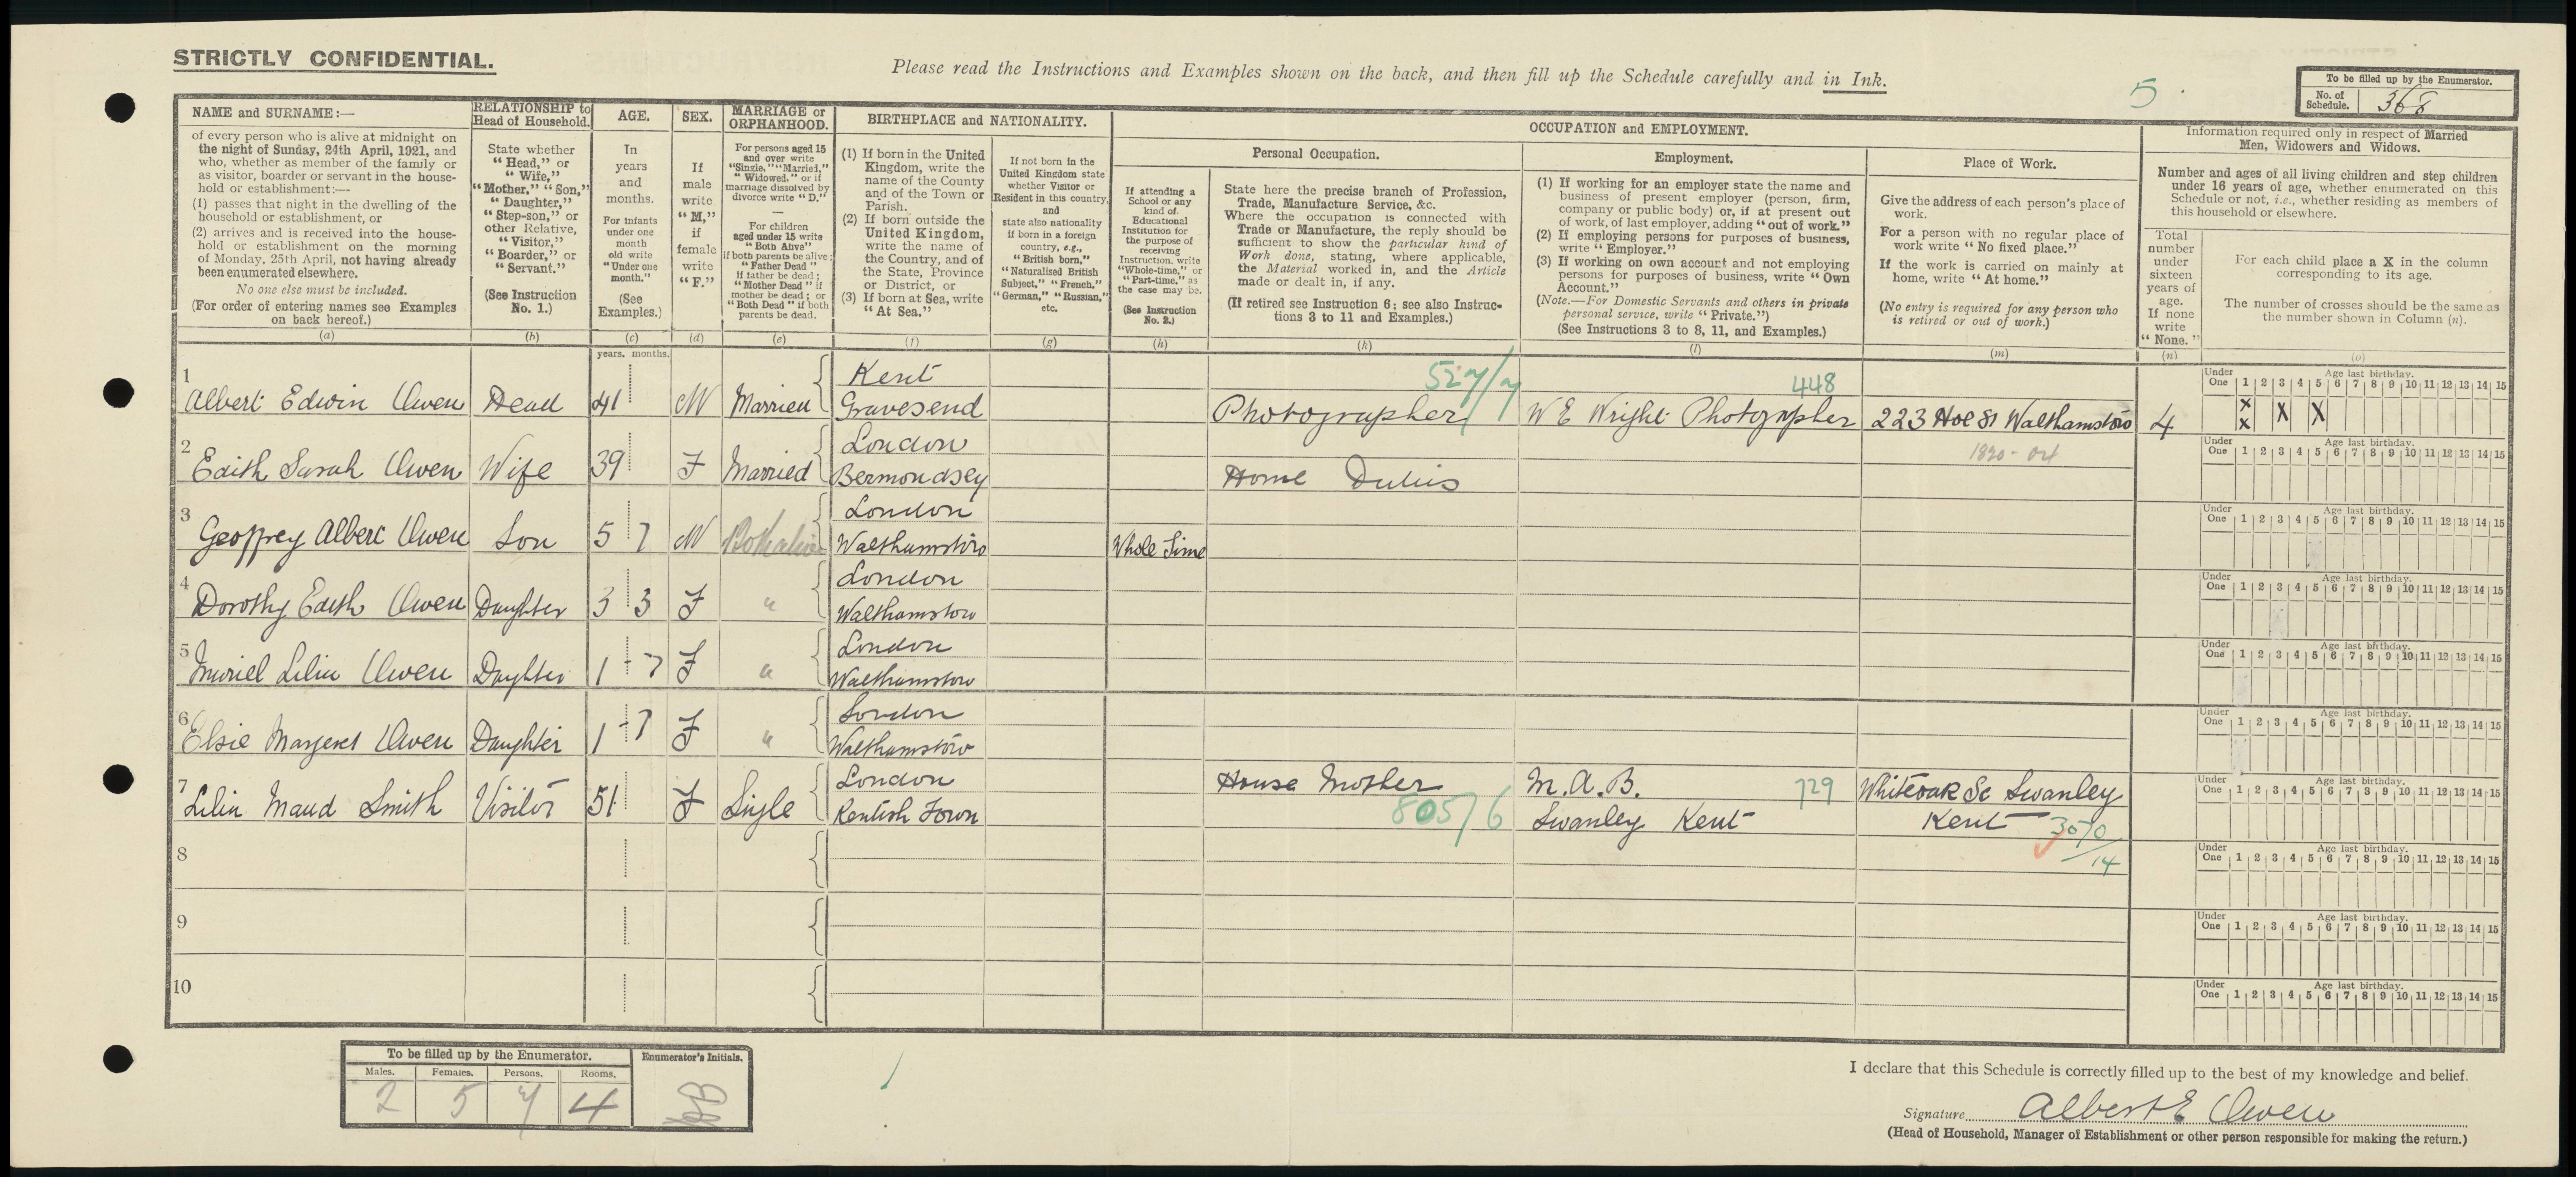 STRICTLY CONFIDENTIAL.
Please read the Instructions and Examples shown on the back, and then fill up the Schedule carefully and in Ink.
5
To be filled up by the Enumerator.
No. of Schedule. 368
NAME and SURNAME:—
of every person who is alive at midnight on
the night of Sunday, 24th April, 1921, and
who, whether as member of the family or
as visitor, boarder or servant in the house-
hold or establishment:—
(1) passes that night in the dwelling of the
household or establishment, or
(2) arrives and is received into the house-
hold or establishment on the morning
of Monday, 25th April, not having already
been enumerated elsewhere.
No one else must be included.
(For order of entering names see Examples
on back hereof.)
(a)
RELATIONSHIP to
Head of Household.
State whether
"Head," or
"Wife,"
"Mother," "Son,"
"Daughter,"
"Step-son," or
other Relative,
"Visitor,"
"Boarder," or
"Servant."
(See Instruction
No. 1.)
(b)
AGE.
In
years
and
months.
For infants
under one
month
old write
"Under one
month."
(See
Examples.)
(c)
years. months.
SEX.
If
male
write
"M,"
if
female
write
"F."
(d)
MARRIAGE or
ORPHANHOOD.
For persons aged 15
and over write
"Single," "Married,"
"Widowed," or if
marriage dissolved by
divorce write "D."
—
For children
aged under 15 write
"Both Alive"
if both parents be alive;
"Father Dead"
if father be dead;
"Mother Dead" if
mother be dead; or
"Both Dead" if both
parents be dead.
(e)
BIRTHPLACE and NATIONALITY.
(1) If born in the United
Kingdom, write the
name of the County
and of the Town or
Parish.
(2) If born outside the
United Kingdom,
write the name of
the Country, and of
the State, Province
or District, or
(3) If born at Sea, write
"At Sea."
(f)
If not born in the
United Kingdom state
whether Visitor or
Resident in this country,
and
state also nationality
if born in a foreign
country, e.g.,
"British born,"
"Naturalised British
Subject," "French,"
"German," "Russian,"
etc.
(g)
OCCUPATION and EMPLOYMENT.
If attending a
School or any
kind of
Educational
Institution for
the purpose of
receiving
Instruction, write
"Whole-time," or
"Part-time," as
the case may be.
(See Instruction
No. 2.)
(h)
Personal Occupation.
State here the precise branch of Profession,
Trade, Manufacture Service, &c.
Where the occupation is connected with
Trade or Manufacture, the reply should be
sufficient to show the particular kind of
Work done, stating, where applicable,
the Material worked in, and the Article
made or dealt in, if any.
(If retired see Instruction 6; see also Instruc-
tions 3 to 11 and Examples.)
(k)
Employment.
(1) If working for an employer state the name and
business of present employer (person, firm,
company or public body) or, if at present out
of work, of last employer, adding "out of work."
(2) If employing persons for purposes of business,
write "Employer."
(3) If working on own account and not employing
persons for purposes of business, write "Own
Account."
(Note.—For Domestic Servants and others in private
personal service, write "Private.")
(See Instructions 3 to 8, 11, and Examples.)
(l)
Place of Work.
Give the address of each person's place of
work.
For a person with no regular place of
work write "No fixed place."
If the work is carried on mainly at
home, write "At home."
(No entry is required for any person who
is retired or out of work.)
(m)
Information required only in respect of Married
Men, Widowers and Widows.
Number and ages of all living children and step children
under 16 years of age, whether enumerated on this
Schedule or not, i.e., whether residing as members of
this household or elsewhere.
Total
number
under
sixteen
years of
age.
If none
write
"None."
(n)
For each child place a X in the column
corresponding to its age.
The number of crosses should be the same as
the number shown in Column (n).
(o)
Under One 1 2 3 4 5 6 7 8 9 10 11 12 13 14 15
Age last birthday.
1 Albert Edwin Owen Head 41 M Married Kent Gravesend Photographer W E Wright Photographer 448 223 Hoe St Walthamstow 4 x x X X
2 Edith Sarah Owen Wife 39 F Married London Bermondsey Home Duties
Under One 1 2 3 4 5 6 7 8 9 10 11 12 13 14 15
Age last birthday.
3 Geoffrey Albert Owen Son 5 7 M Both alive London Walthamstow Whole Time
Under One 1 2 3 4 5 6 7 8 9 10 11 12 13 14 15
Age last birthday.
4 Dorothy Edith Owen Daughter 3 3 F " London Walthamstow
Under One 1 2 3 4 5 6 7 8 9 10 11 12 13 14 15
Age last birthday.
5 Muriel Lilia Owen Daughter 1 - 7 F " London Walthamstow
Under One 1 2 3 4 5 6 7 8 9 10 11 12 13 14 15
Age last birthday.
6 Elsie Margaret Owen Daughter 1 - 7 F " London Walthamstow
Under One 1 2 3 4 5 6 7 8 9 10 11 12 13 14 15
Age last birthday.
7 Lilia Maud Smith Visitor 51 F Single London Kentish Town House Mother 805/6 M.A.B. 729 Swanley Kent Whiteoak Sc Swanley Kent
Under One 1 2 3 4 5 6 7 8 9 10 11 12 13 14 15
Age last birthday.
8
Under One 1 2 3 4 5 6 7 8 9 10 11 12 13 14 15
Age last birthday.
9
Under One 1 2 3 4 5 6 7 8 9 10 11 12 13 14 15
Age last birthday.
10
Under One 1 2 3 4 5 6 7 8 9 10 11 12 13 14 15
Age last birthday.
To be filled up by the Enumerator.
Males. Females. Persons. Rooms.
2 5 7 4
Enumerator's Initials.
I declare that this Schedule is correctly filled up to the best of my knowledge and belief.
Signature Albert E Owen
(Head of Household, Manager of Establishment or other person responsible for making the return.)